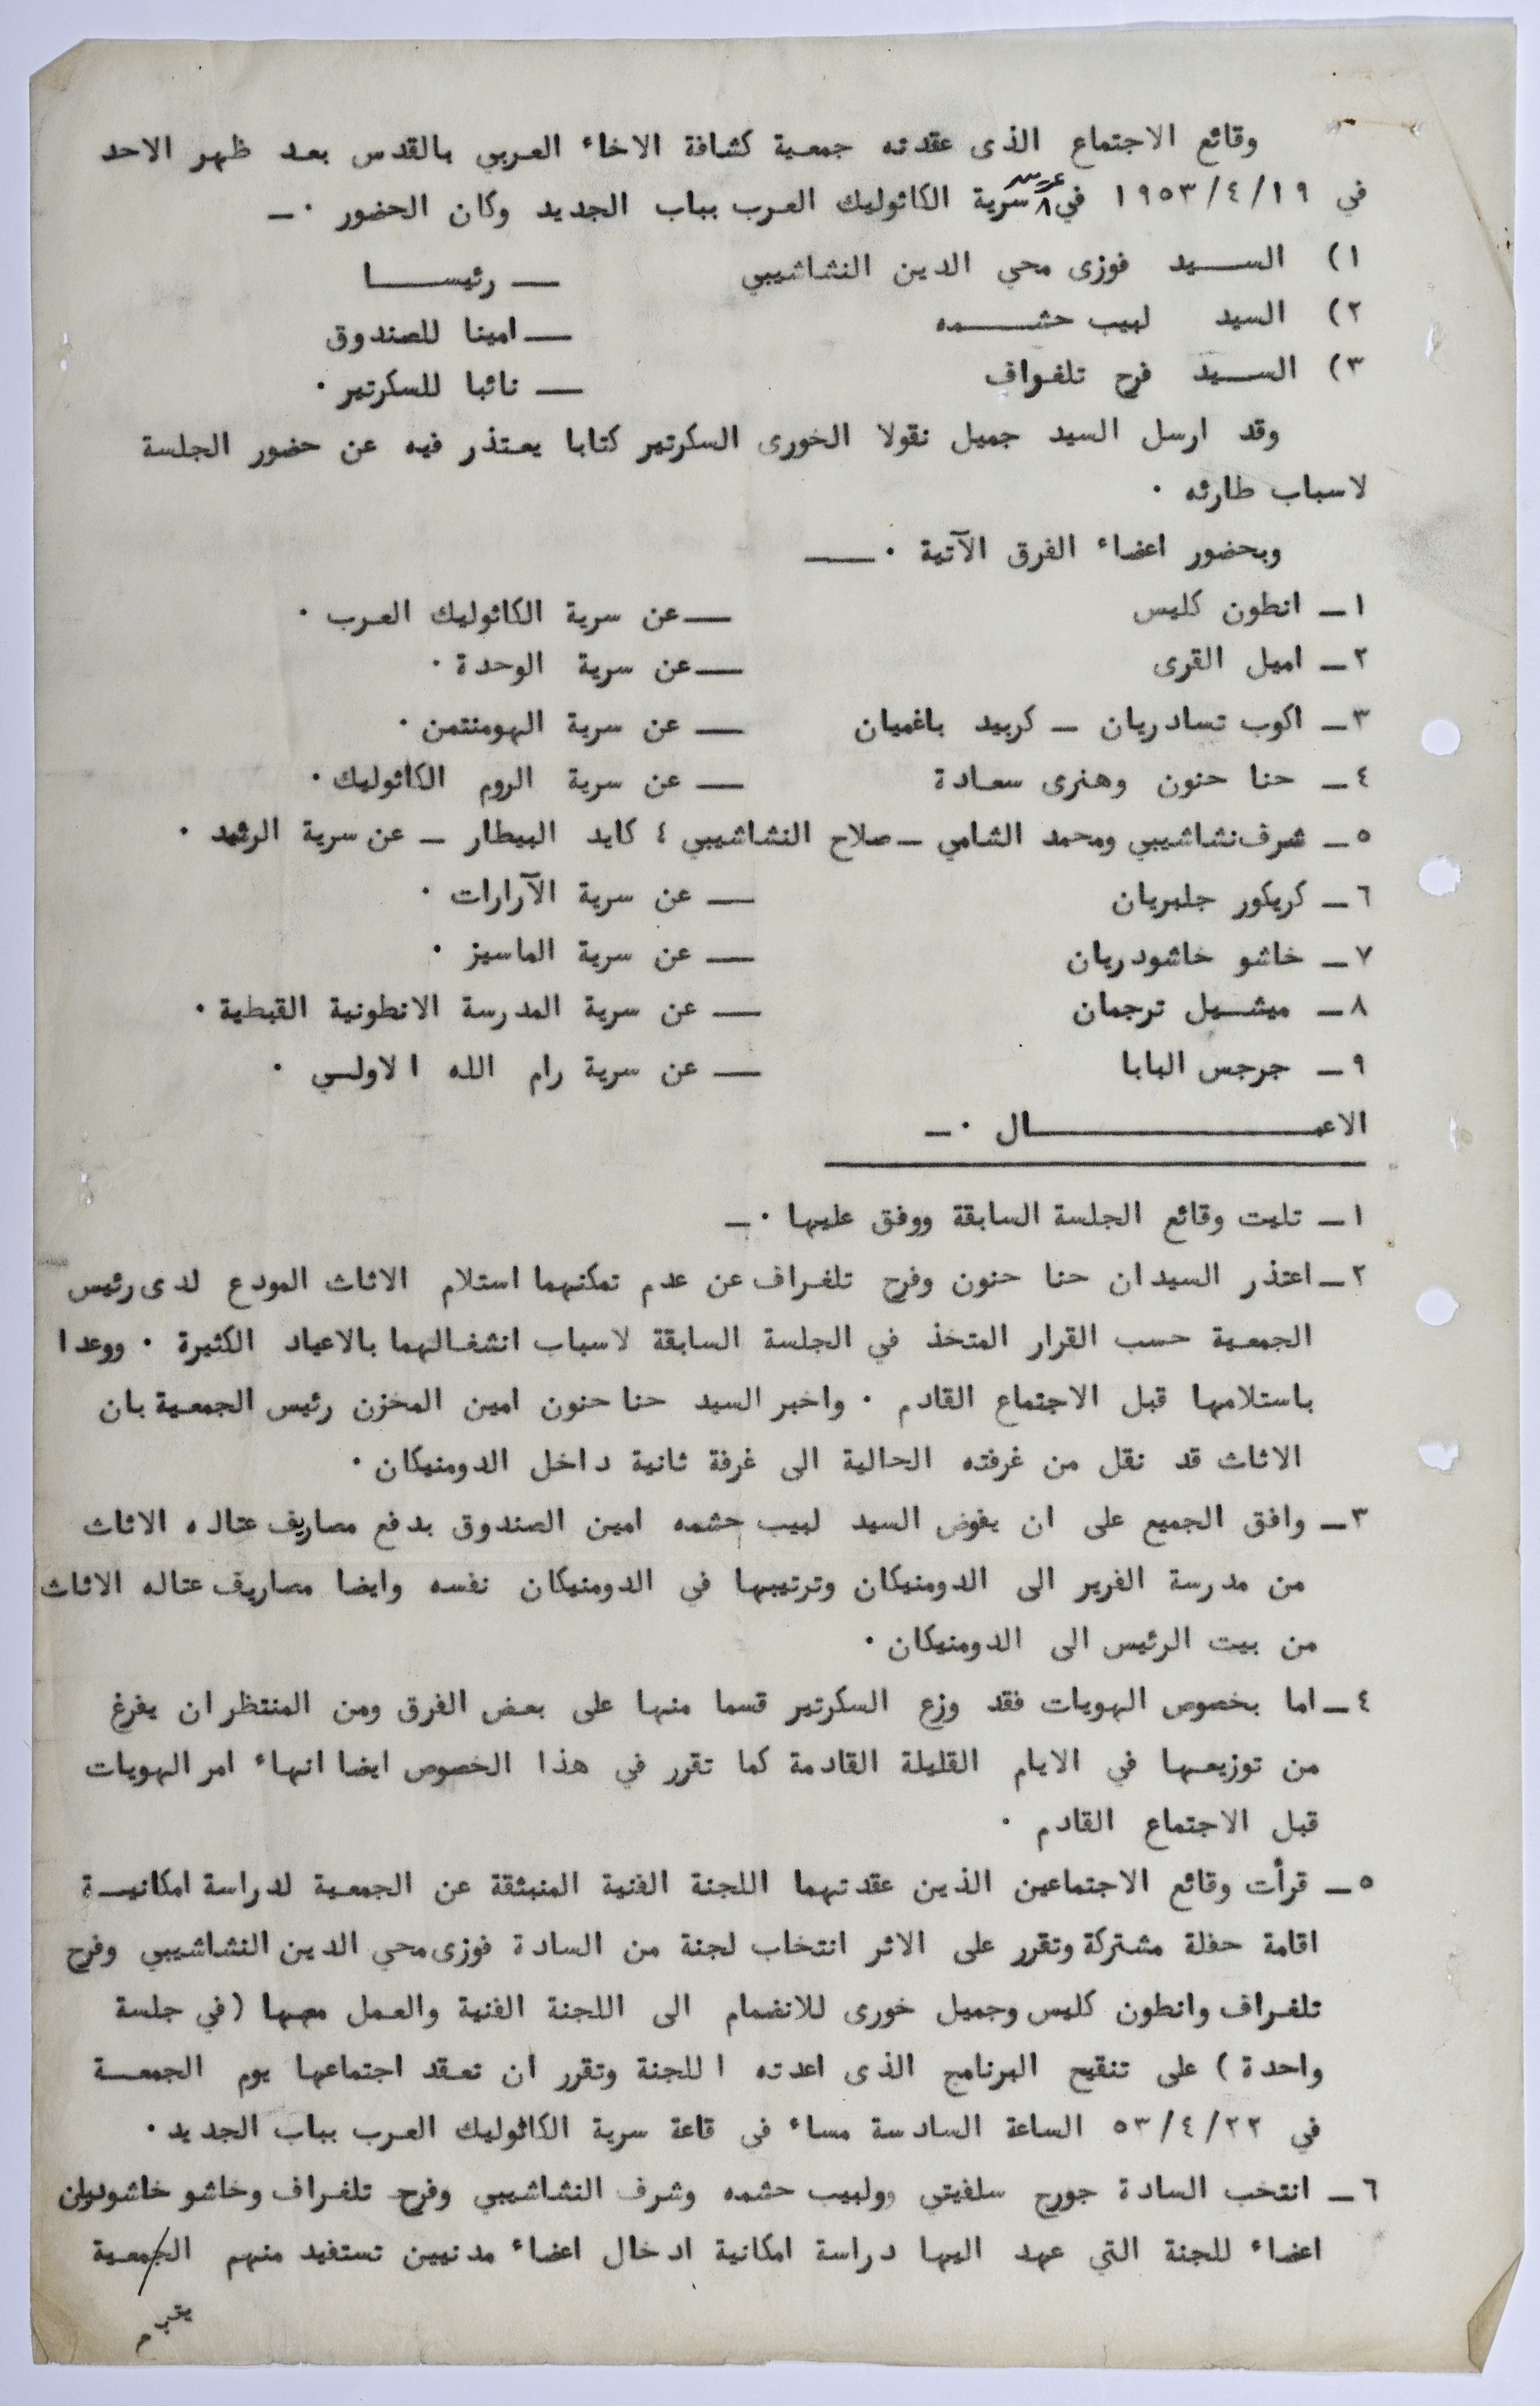 وقائع الاجتماع الذى عقدته جمعية كشافة الاخاء العربي بالقدس بعد ظهر الاحد
في ١٩٥٣/٤/١٩ في سرية الكاثوليك العرب بباب الجديد وكان الحضور ٠ـ
١) الســيد فوزى محي الدين النشاشيبي ــ رئيســا
٢) السيد لبيب حشــمه ــ امينا للصندوق
٣) الســيد فرح تلفراف ــ نائبا للسكرتير ٠
وقد ارسل السيد جميل نقولا الخورى السكرتير كتابا يعتذر فيه عن حضور الجلسة
لاسباب طارئه ٠
وبحضور اعضاء الفرق الآتية ٠ــ
١ـ انطون كليس ــ عن سرية الكاثوليك العرب ٠
٢ـ اميل القرى ــ عن سرية الوحدة ٠
٣ـ اكوب تسادريان ـ كربيد باغميان ــ عن سرية الهومنتمن ٠
٤ـ حنا حنون وهنرى سعادة ــ عن سرية الروم الكاثوليك ٠
٥ـ شرف نشاشيبي ومحمد الشامي ـ صلاح النشاشيبي ٤ كايد البيطار ـ عن سرية الرشيد ٠
٦ـ كريكور جلبريان ــ عن سرية الآرارات ٠
٧ـ خاشو خاشودريان ــ عن سرية الماسيز ٠
٨ـ ميشـيل ترجمان ــ عن سرية المدرسة الانطونية القبطية ٠
٩ـ جرجس البابا ــ عن سرية رام الله الاولـي ٠
الاعمــــــــال ٠ـ
١ـ تليت وقائع الجلسة السابقة ووفق عليها ٠ـ
٢ـ اعتذر السيدان حنا حنون وفرح تلغراف عن عدم تمكنهما استلام الاثاث المودع لدى رئيس
الجمعية حسب القرار المتخذ في الجلسة السابقة لاسباب انشغالهما بالاعياد الكثيرة ٠ ووعدا
باستلامها قبل الاجتماع القادم ٠ واخبر السيد حنا حنون امين المخزن رئيس الجمعية بان
الاثاث قد نقل من غرفته الحالية الى غرفة ثانية داخل الدومنيكان ٠
٣ـ وافق الجميع على ان يفوض السيد لبيب حشمه امين الصندوق بدفع مصاريف عتاله الاثاث
من مدرسة الفرير الى الدومنيكان وترتيبها في الدومنيكان نفسه وايضا مصاريف عتاله الاثاث
من بيت الرئيس الى الدومنيكان ٠
٤ـ اما بخصوص الهويات فقد وزع السكرتير قسما منها على بعض الفرق ومن المنتظر ان يفرغ
من توزيعها في الايام القليلة القادمة كما تقرر في هذا الخصوص ايضا انهاء امر الهويات
قبل الاجتماع القادم ٠
٥ـ قرأت وقائع الاجتماعين الذين عقدتهما اللجنة الفنية المنبثقة عن الجمعية لدراسة امكانيـة
اقامة حفلة مشتركة وتقرر على الاثر انتخاب لجنة من السادة فوزى محي الدين النشاشيبي وفرح
تلغراف وانطون كليس وجميل خورى للانضمام الى اللجنة الفنية والعمل معها (في جلسة
واحدة) على تنقيح البرنامج الذى اعدته اللجنة وتقرر ان تعقد اجتماعها يوم الجمعـــة
في ٥٣/٤/٢٢ الساعة السادسة مساء في قاعة سرية الكاثوليك العرب بباب الجديد ٠
٦ـ انتخب السادة جورج سلفيتي وولبيب حشمه وشرف النشاشيبي وفرح تلغراف وخاشو خاشودريان
اعضاء للجنة التي عهد اليها دراسة امكانية ادخال اعضاء مدنيين تستفيد منهم الجمعية